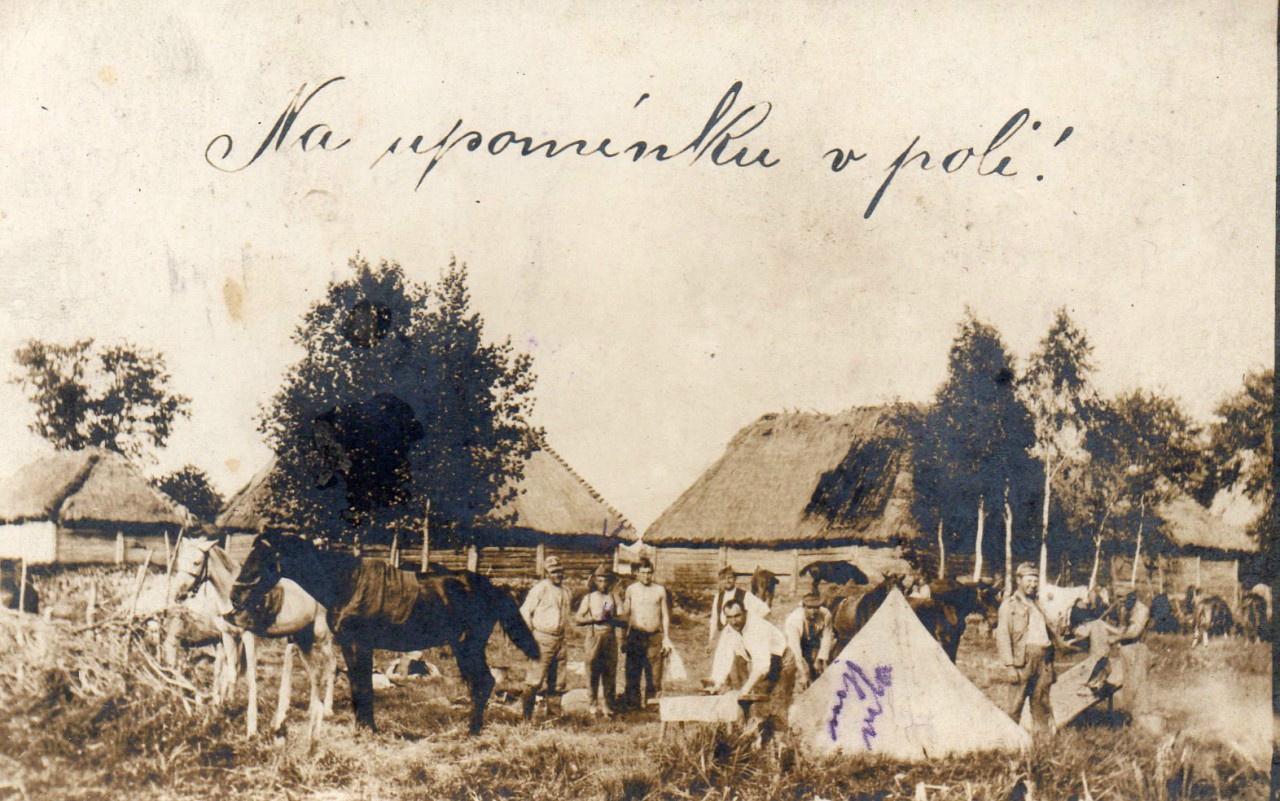 Na upomínku v poli!